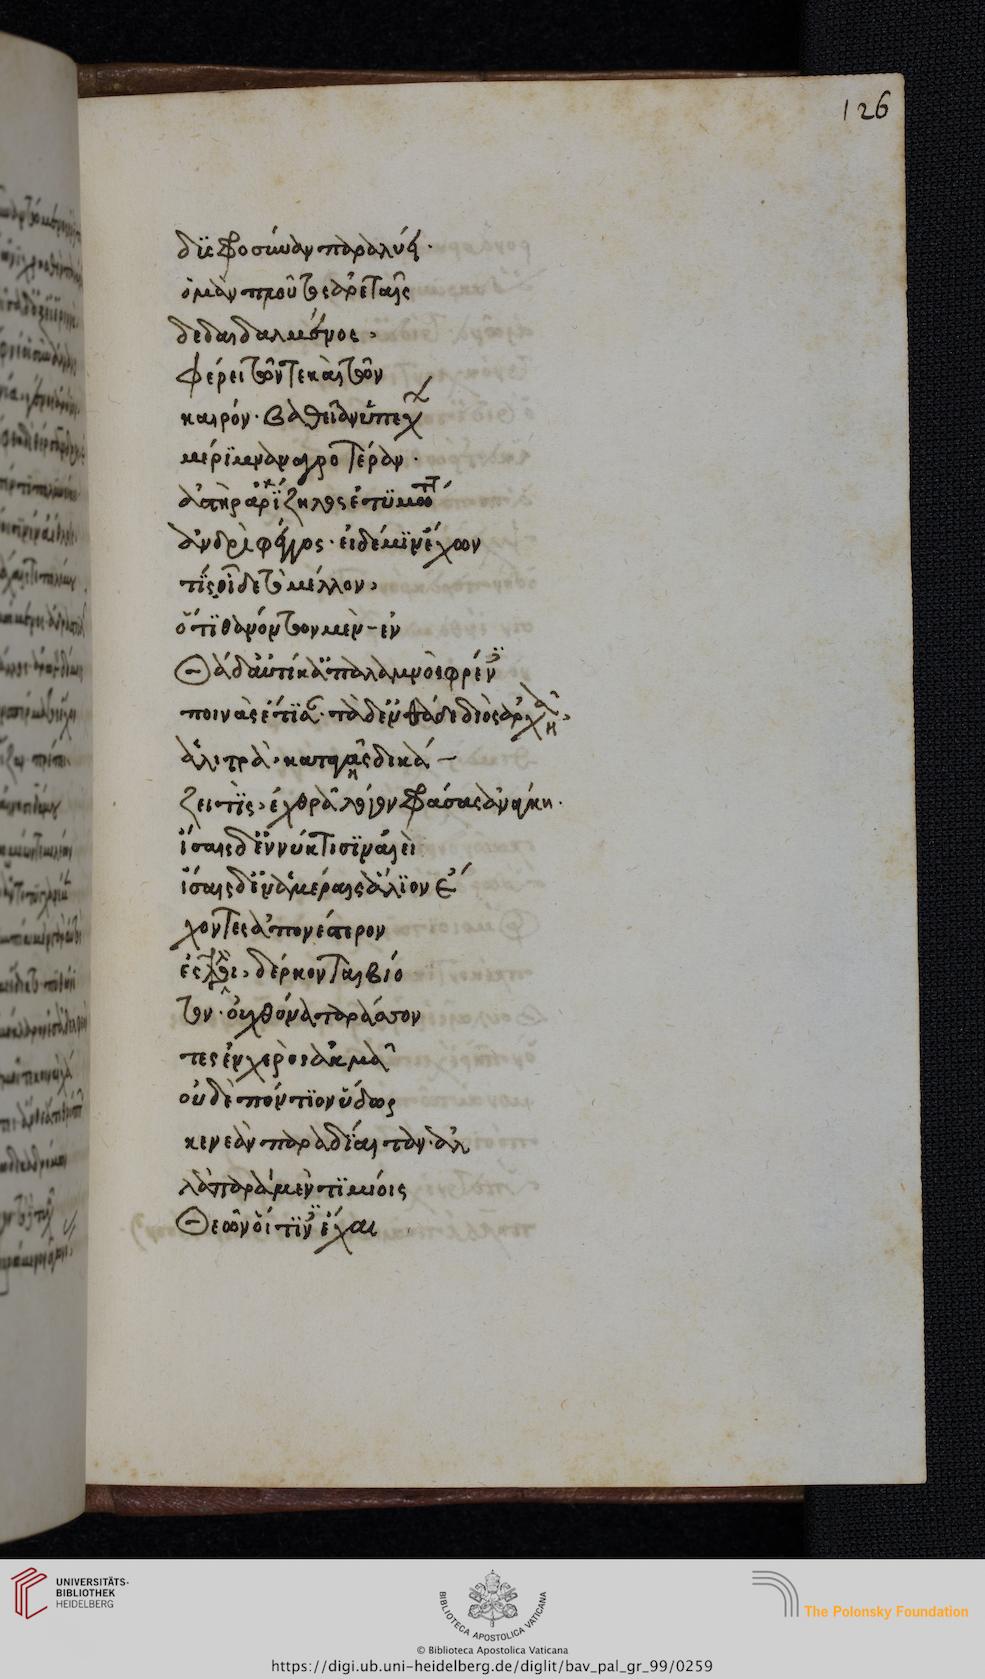 126
δϊσφροσύναν παραλύει.
ὁ μὰν πλοῦτος ἀρεταῖς
δεδαιδαλμένος,
φέρει τῶν τε καὶ τῶν
καιρόν. βαθεῖαν ὑπέχων
μέριμναν ἀγροτέραν.
ἀστὴρ ἀρίζηλος ἐτυμώτατον
ἀνδρὶ φέγγος. εἰ δέ μϊν ἔχων
τὶς οἶδε τὸ μέλλον,
ὅτι θανόντων μὲν ἐν
θάδ' αὐτίκ' ἀπάλαμνοι φρένες
ποινὰς ἔτισαν. τὰ δ' ἐν τᾷδε διὸς ἀρχᾷ,
ἀλιτρὰ, κατὰ γᾶς δικά
ζει τὶς, ἐχθρᾷ λόγον φράσας ἀνάγκῃ.
ἴσαις δ' ἐν νύκτισϊν ἀεὶ
ἴσαις δ' ἐν ἁμέραις ἅλϊον ἔ
χοντες ἀπονέστερον
ἐσθλοὶ, δέρκονται βίο
τον. οὐ χθόνα ταράσσον
τες ἐν χερὸς ἀκμᾷ
οὐδὲ πόντϊον ὕδωρ
κενεὰν παρὰ δίαιταν. ἀλ
λὰ παρὰ μὲν τϊμίοις
θεῶν οἵ τϊνες ἔχαι
UNIVERSITÄTS-
BIBLIOTHEK
HEIDELBERG
BIBLIOTECA APOSTOLICA VATICANA
The Polonsky Foundation
© Biblioteca Apostolica Vaticana
https://digi.ub.uni-heidelberg.de/diglit/bav_pal_gr_99/0259